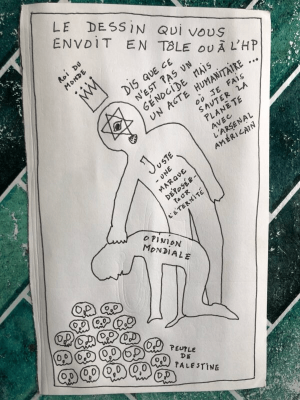 LE DESSIN QUI VOUS
ENVOIT EN TÔLE OU À L'HP
ROI DU
MONDE
DIS QUE CE
N'EST PAS UN
GÉNOCIDE MAIS
UN ACTE HUMANITAIRE...
OÙ JE FAIS
SAUTER LA
PLANÈTE
AVEC
L'ARSENAL
AMÉRICAIN
JUSTE
UNE
MARQUE
DÉPOSÉE
POUR
L'ÉTERNITÉ
OPINION
MONDIALE
PEUPLE
DE
PALESTINE